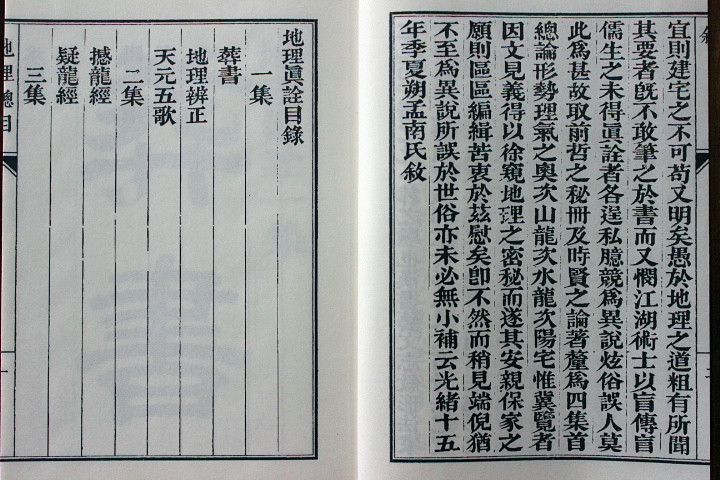 宜則建宅之不可苟又明矣愚於地理之道粗有所聞
其要者旣不敢筆之於書而又憫江湖術士以盲傳盲
儒生之未得眞詮者各逞私臆競爲異說炫俗誤人莫
此爲甚故取前哲之秘冊及時賢之論著釐爲四集首
總論形勢理氣之奧次山龍次水龍次陽宅惟冀覽者
因文見義得以徐窺地理之密秘而遂其安親保家之
願則區區編緝苦衷於茲慰矣卽不然而稍見端倪猶
不至爲異說所誤於世俗亦未必無小補云光緒十五
年季夏朔孟南氏敘
地理眞詮目錄
一集
葬書
地理辨正
天元五歌
二集
撼龍經
疑龍經
三集
地理總目